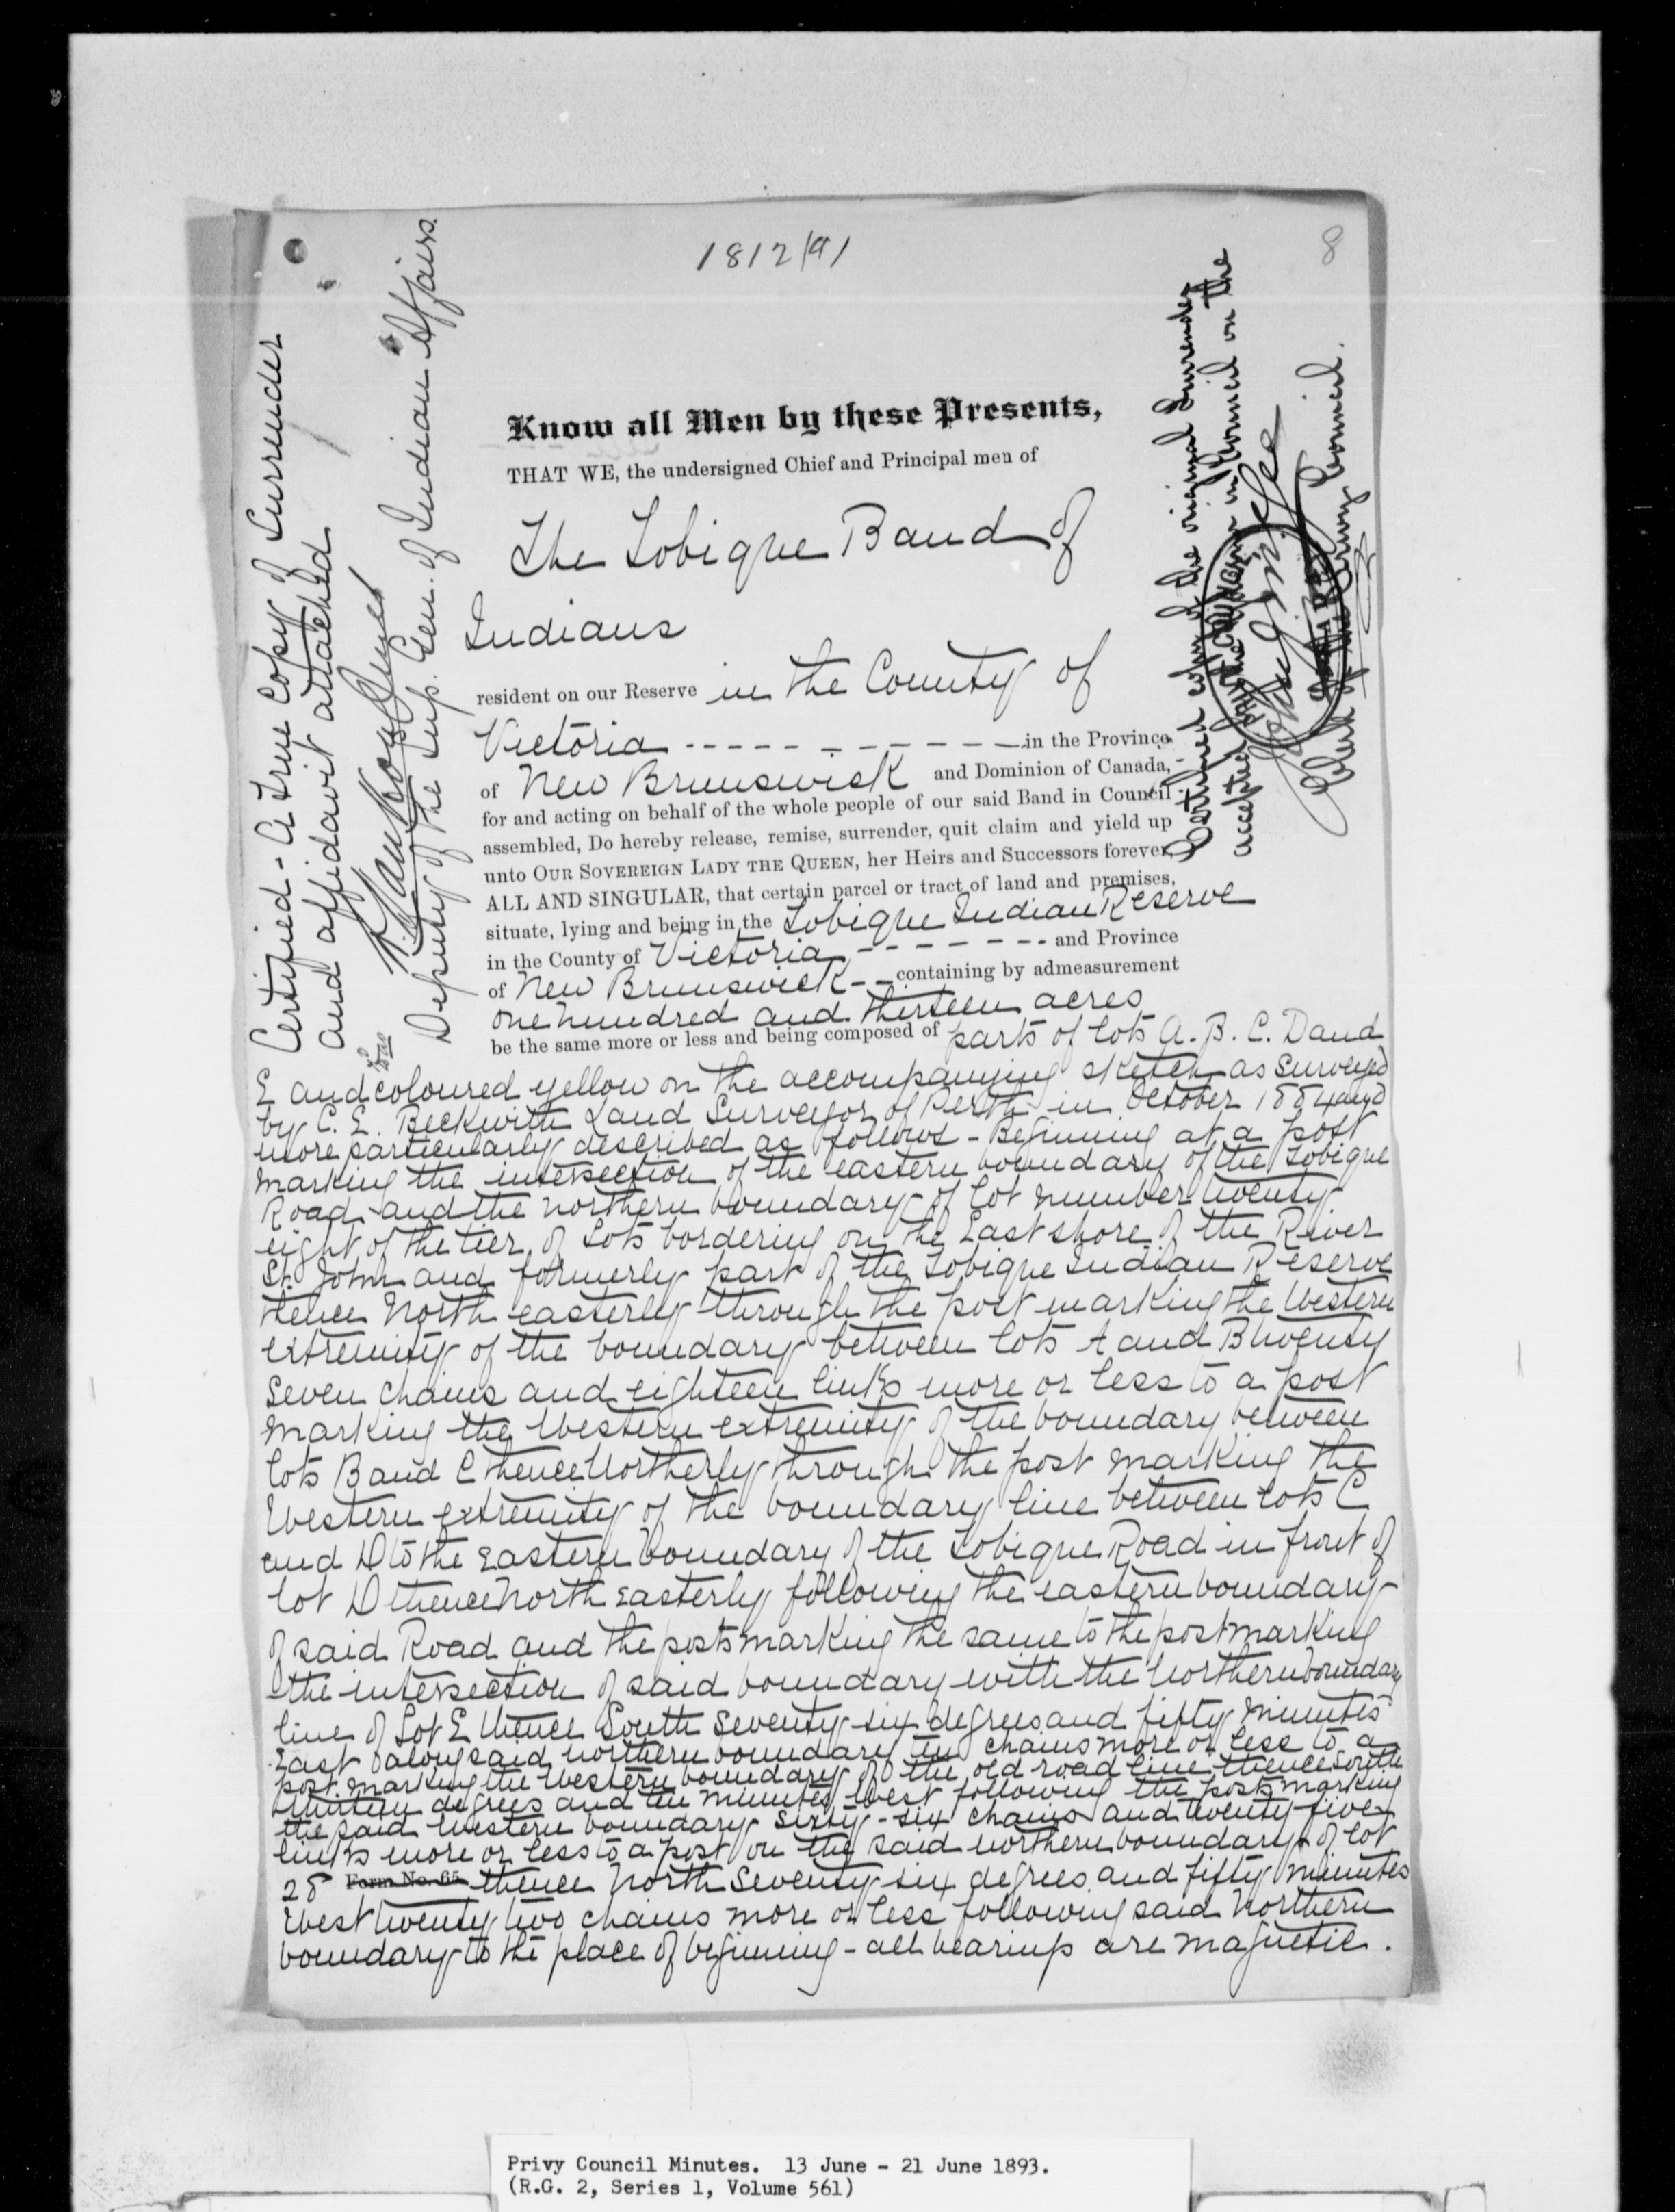 1812/91
8
Certified - A True Copy of Surrender
and affidavit attached
Deputy of the Sup. Gen. of Indian Affairs.
Certified copy of the original Surrender
accepted by the Governor in Council on the
John J. McGee
Clerk of the Privy Council.
Know all Men by these Presents,
THAT WE, the undersigned Chief and Principal men of
The Tobique Band of
Indians
resident on our Reserve in the County of
Victoria in the Province
of New Brunswick and Dominion of Canada,
for and acting on behalf of the whole people of our said Band in Council
assembled, Do hereby release, remise, surrender, quit claim and yield up
unto OUR SOVEREIGN LADY THE QUEEN, her Heirs and Successors forever,
ALL AND SINGULAR, that certain parcel or tract of land and premises,
situate, lying and being in the Tobique Indian Reserve
in the County of Victoria and Province
of New Brunswick containing by admeasurement
one hundred and thirteen acres
be the same more or less and being composed of parts of lots A. B. C. D and
E and coloured yellow on the accompanying sketch as surveyed
by C. E. Beckwith Land Surveyor of Perth in October 1884 and
more particularly described as follows - Beginning at a post
marking the intersection of the eastern boundary of the Tobique
Road and the northern boundary of lot number twenty
eight of the tier of Lots bordering on the East shore of the River
St. John and formerly part of the Tobique Indian Reserve
thence North easterly through the post marking the Western
extremity of the boundary between lots A and B twenty
seven chains and eighteen links more or less to a post
marking the Western extremity of the boundary between
lots B and C thence Northerly through the post marking the
Western extremity of the boundary line between lots C
and D to the Eastern boundary of the Tobique Road in front of
lot D thence North Easterly following the eastern boundary
of said Road and the posts marking the same to the post marking
the intersection of said boundary with the Northern boundary
line of Lot E thence South seventy six degrees and fifty minutes
East along said northern boundary ten chains more or less to a
post marking the Western boundary of the old road line thence south
thirteen degrees and ten minutes West following the posts marking
the said Western boundary sixty-six chains and twenty five
links more or less to a post on the said northern boundary of lot
28 Form No. 65. thence North Seventy six degrees and fifty minutes
West twenty two chains more or less following said Northern
boundary to the place of beginning - all bearings are magnetic.
Privy Council Minutes. 13 June - 21 June 1893.
(R.G. 2, Series 1, Volume 561)